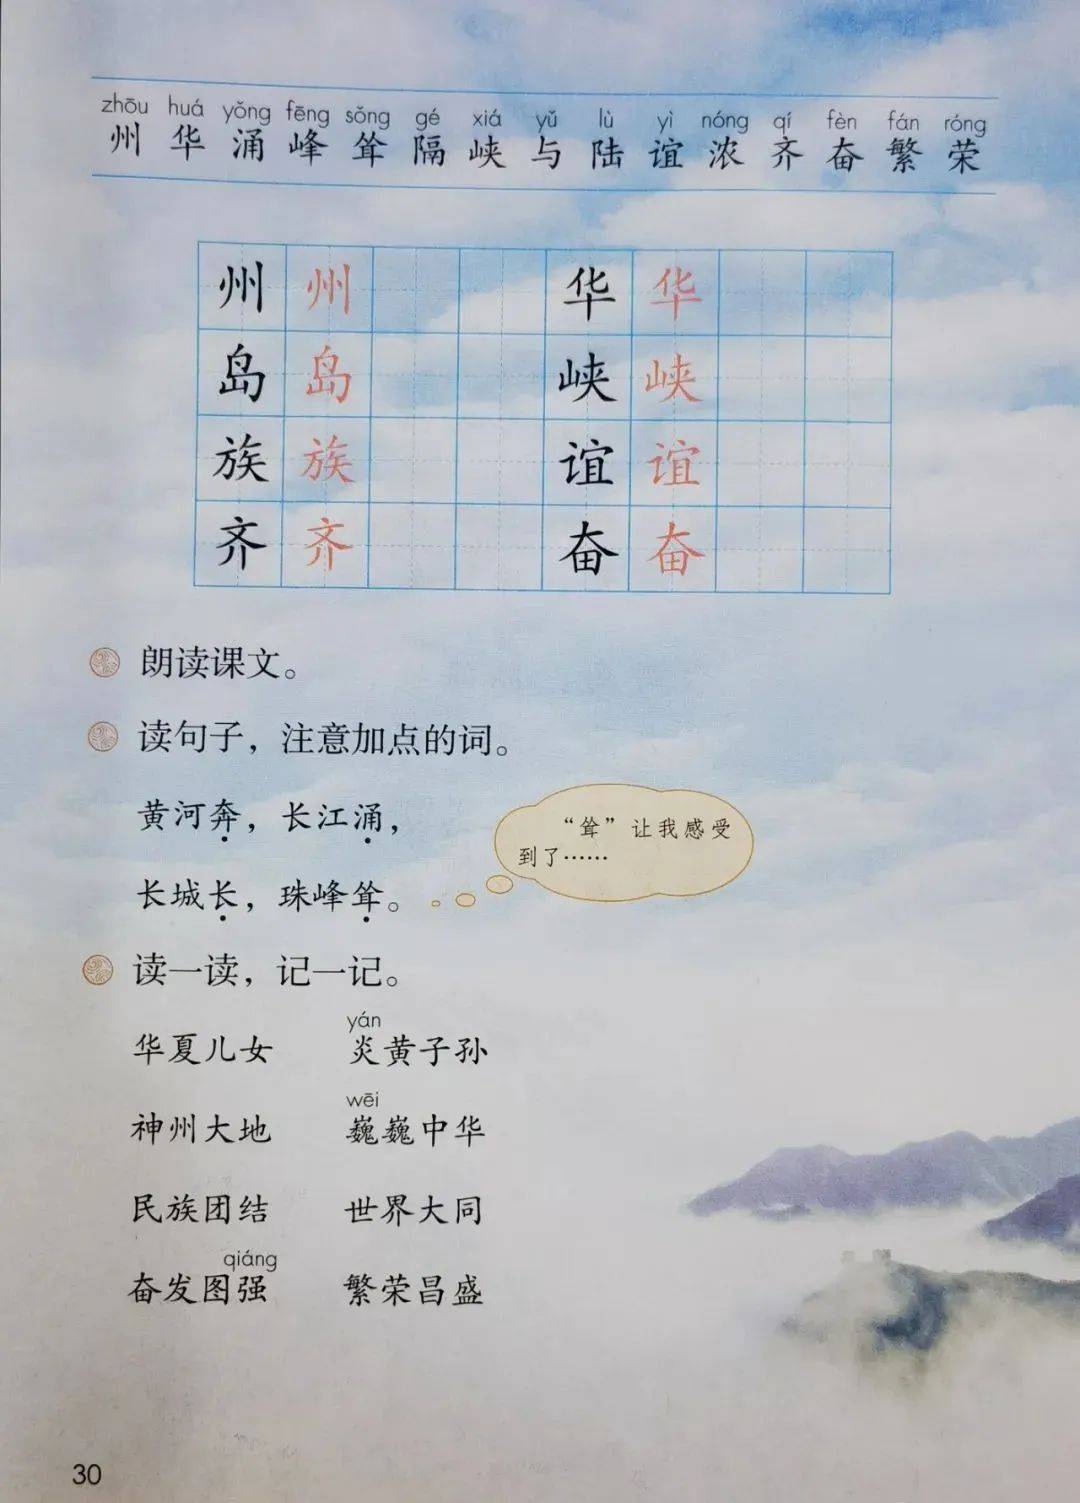 zhōu huá yǒng fēng sǒng gé xiá yǔ lù yì nóng qí fèn fán róng
州 华 涌 峰 耸 隔 峡 与 陆 谊 浓 齐 奋 繁 荣
州 州 华 华
岛 岛 峡 峡
族 族 谊 谊
齐 齐 奋 奋
朗读课文。
读句子，注意加点的词。
黄河奔，长江涌，
长城长，珠峰耸。
“耸”让我感受
到了……
读一读，记一记。
yán
华夏儿女 炎黄子孙
wēi
神州大地 巍巍中华
民族团结 世界大同
qiáng
奋发图强 繁荣昌盛
30